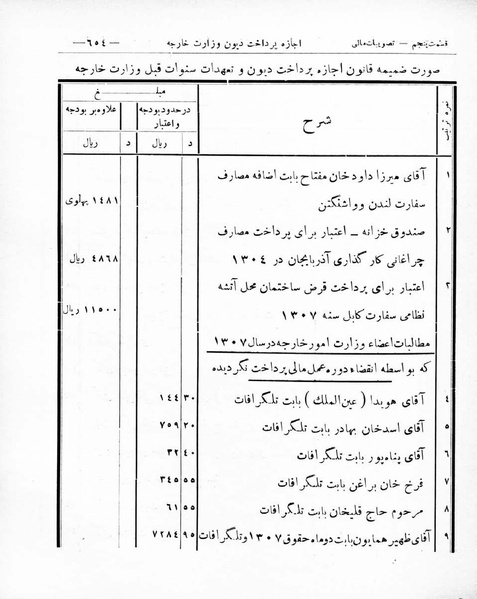 قسمت پنجم — تصویبات مالی
اجازه پرداخت دیون وزارت خارجه
— ٦٥٤ —
صورت ضمیمه قانون اجازه پرداخت دیون و تعهدات سنوات قبل وزارت خارجه
نمره ترتیب
شرح
مبلغ
در حدود بودجه و اعتبار
علاوه بر بودجه
د ریال
د ریال
١ آقای میرزا داود خان مفتاح بابت اضافه مصارف
سفارت لندن و واشنگتن ١٤٨١ پهلوی
٢ صندوق خزانه — اعتبار برای پرداخت مصارف
چراغانی کارگذاری آذربایجان در ١٣٠٤ ٤٨٦٨ ریال
٣ اعتبار برای پرداخت قرض ساختمان محل آتشه
نظامی سفارت کابل سنه ١٣٠٧ ١١٥٠٠ ریال
مطالبات اعضاء وزارت امور خارجه در سال ١٣٠٧
که بواسطه انقضاء دوره عمل مالی پرداخت نگردیده
٤ آقای هویدا ( عین الملک ) بابت تلگرافات ٣٠ ١٤٤
٥ آقای اسدخان بهادر بابت تلگرافات ٢٠ ٧٥٩
٦ آقای پناه پور بابت تلگرافات ٤٠ ٣٢
٧ فرخ خان براغن بابت تلگرافات ٥٥ ٣٤٥
٨ مرحوم حاج قلیخان بابت تلگرافات ٥٥ ٦١
٩ آقای ظهیر همایون بابت دو ماه حقوق ١٣٠٧ و تلگرافات ٩٥ ٧٢٨٤